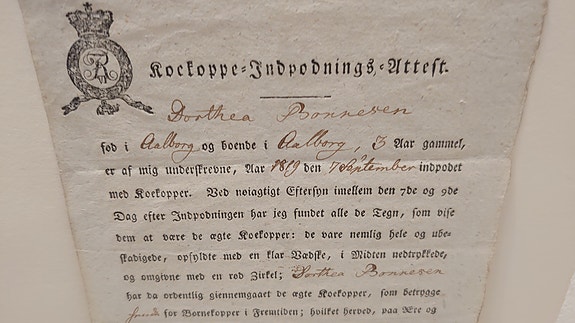 Koekoppe-Indpodnings-Attest.
Dorthea Bonnesen
fød i Aalborg og boende i Aalborg, 3 Aar gammel,
er af mig underskrevne, Aar 1819 den 7 September indpodet
med Koekopper. Ved nøiagtigt Eftersyn imellem den 7de og 9de
Dag efter Indpodningen har jeg fundet alle de Tegn, som vise
dem at være de ægte Koekopper: de vare nemlig hele og ube-
skadigede, opfyldte med en klar Vædske, i Midten nedtrykkede,
og omgivne med en rød Zirkel; Dorthea Bonnesen
har da ordentlig giennemgaaet de ægte Koekopper, som betrygge
for Børnekopper i Fremtiden; hvilket herved, paa Ære og